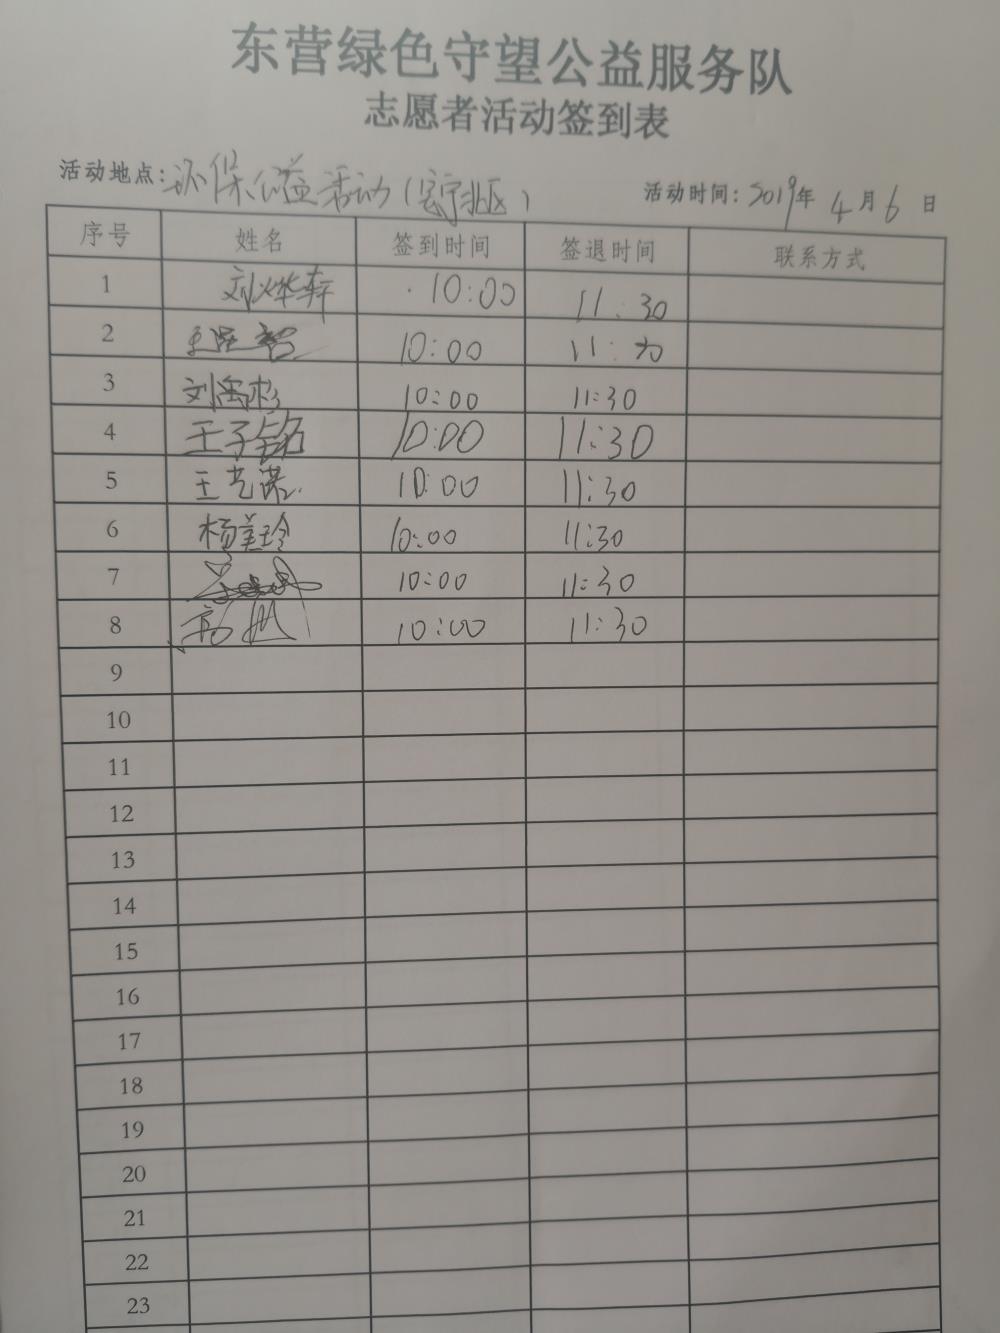 东营绿色守望公益服务队
志愿者活动签到表
活动地点：环保公益活动（ 区） 活动时间：2019年4月6日
序号 姓名 签到时间 签退时间 联系方式
1 刘烨轩 10:00 11:30
2 10:00 11:30
3 刘禹杉 10:00 11:30
4 王子铭 10:00 11:30
5 王艺潇 10:00 11:30
6 杨美玲 10:00 11:30
7 10:00 11:30
8 10:00 11:30
9
10
11
12
13
14
15
16
17
18
19
20
21
22
23